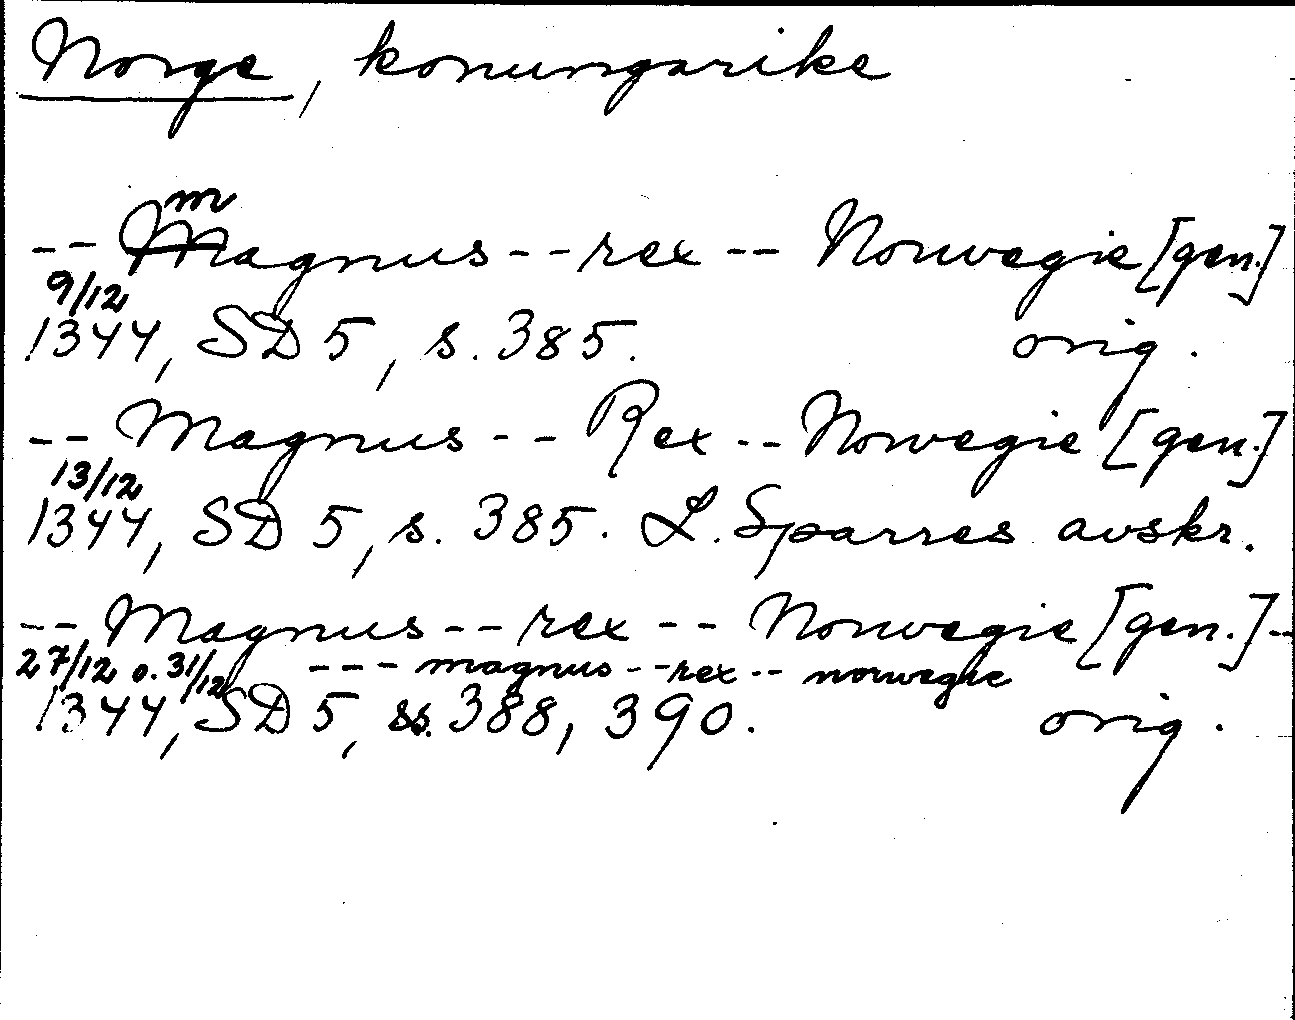 Norge, konungarike
m
-- Magnus -- rex -- Norwegie [gen.]
9/12
1344, SD 5, s. 385. orig.
-- Magnus -- Rex -- Norwegie [gen.]
13/12
1344, SD 5, s. 385. L. Sparres avskr.
-- Magnus -- rex -- Norwegie [gen.] --
27/12 o. 31/12 --- magnus -- rex -- norwegie
1344, SD 5, ss. 388, 390. orig.